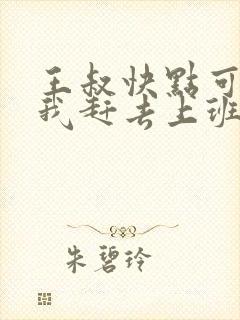 王叔快點可
我赶去上班
朱碧玲